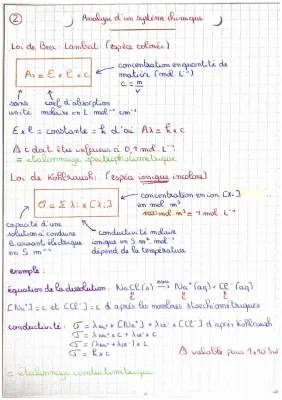 ② Analyse d'un système chimique
Loi de Beer-Lambert (espèce colorée)
Aλ = ε × l × c
concentration en quantité de
matière (mol. L⁻¹)
c = m/v
sans unité
coef d'absorption
molaire en L. mol⁻¹ cm⁻¹
ε × l = constante = k d'où Aλ = k × c
Δ c doit être inférieur à 0,1 mol. L⁻¹
= étalonnage spectrophotométrique
Loi de Kohlrausch: (espèce ionique incolore)
σ = Σ λi × [Xi]
concentration en ion [Xi]
en mol. m³
1000 mol. m³ = 1 mol. L⁻¹
capacité d'une
solution à conduire
le courant électrique
en S. m⁻¹
conductivité molaire
ionique en S. m². mol⁻¹
dépend de la température
exemple:
équation de la dissolution: NaCl (s) eau→ Na⁺(aq) + Cl⁻(aq)
[Na⁺] = c et [Cl⁻] = c d'après les nombres stoechiométriques
conductivité: σ = λNa⁺ × [Na⁺] + λCl⁻ × [Cl⁻] d'après Kohlrausch
σ = λNa⁺ × c + λCl⁻ × c
σ = (λNa⁺ + λCl⁻) × c
σ = k × c
Δ valable pour
= étalonnage conductimétrique